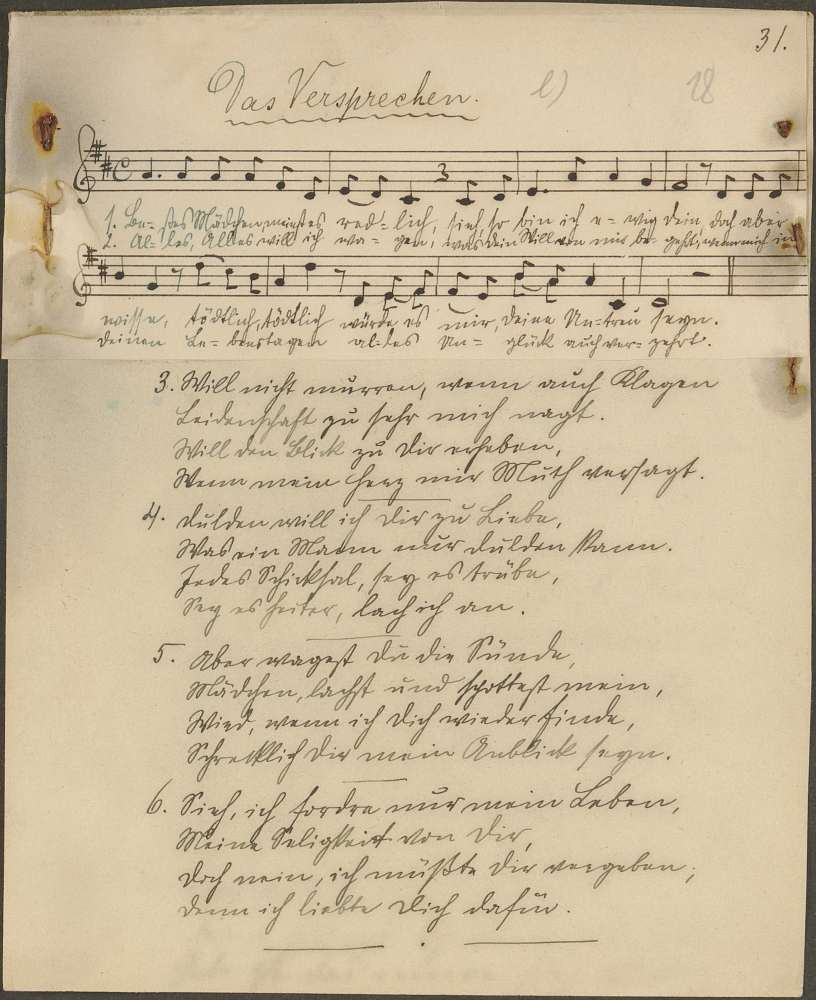 31.
Das Versprechen. e) 18
3
1. Be-stes Mädchen, meinst es red-lich, sieh, so bin ich e-wig dein, doch aber
2. Al-les, Alles will ich wa-gen, was dein Will von mir be-gehrt, wenn mich in
wisse, tödtlich, tödtlich würde es mir, deine Un-treu seyn.
deinen Le-benstagen al-les Un-glück auch ver-zehrt.
3. Will nicht murren, wenn auch Klagen
Leidenschaft zu sehr mich nagt.
Will den Blick zu dir erheben,
Wenn mein Herz mir Muth versagt.
4. Dulden will ich dir zu Liebe,
Was ein Mann nur dulden kann.
Jedes Schicksal, sey es trübe,
Sey es heiter, lach ich an.
5. Aber wagest du die Sünde,
Mädchen, lachst und spottest mein,
Wird, wenn ich dich wieder finde,
Schrecklich dir mein Anblick seyn.
6. Sieh, ich fordre nur mein Leben,
Meine Seligkeit von dir,
Doch nein, ich müßte dir vergeben;
denn ich liebte dich dafür.